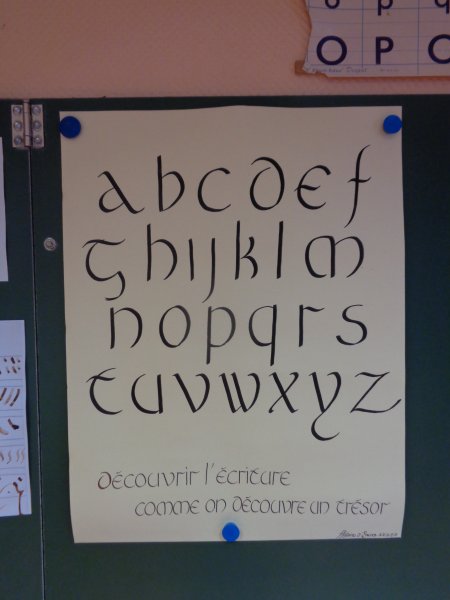 O P Q
a b c d e f
g h i j k l m
n o p q r s
t u v w x y z
Découvrir l'écriture
comme on découvre un trésor